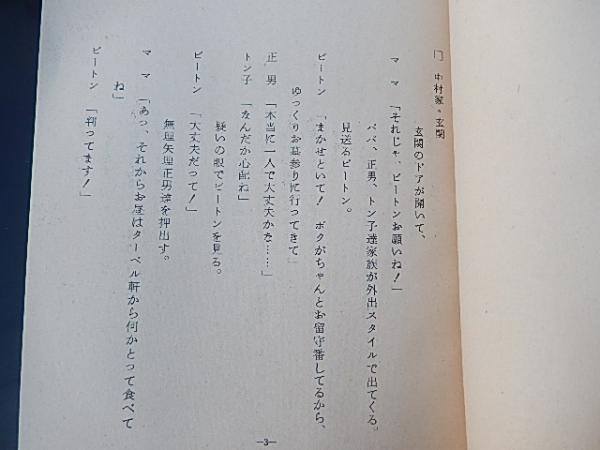 中村家・玄関
玄関のドアが開いて、
ママ「それじゃ、ビートンお願いね！」
パパ、正男、トン子達家族が外出スタイルで出てくる。
見送るビートン。
ビートン「まかせといて！　ボクがちゃんとお留守番してるから、
ゆっくりお墓参りに行ってきて」
正男「本当に一人で大丈夫かな……」
トン子「なんだか心配ね」
疑いの眼でビートンを見る。
ビートン「大丈夫だって！」
無理矢理正男達を押出す。
ママ「あっ、それからお昼はターベル軒から何かとって食べて
ね」
ビートン「判ってます！」
—3—